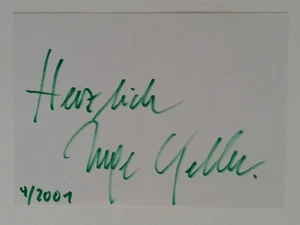 Herzlich
Inge Keller.
4/2001